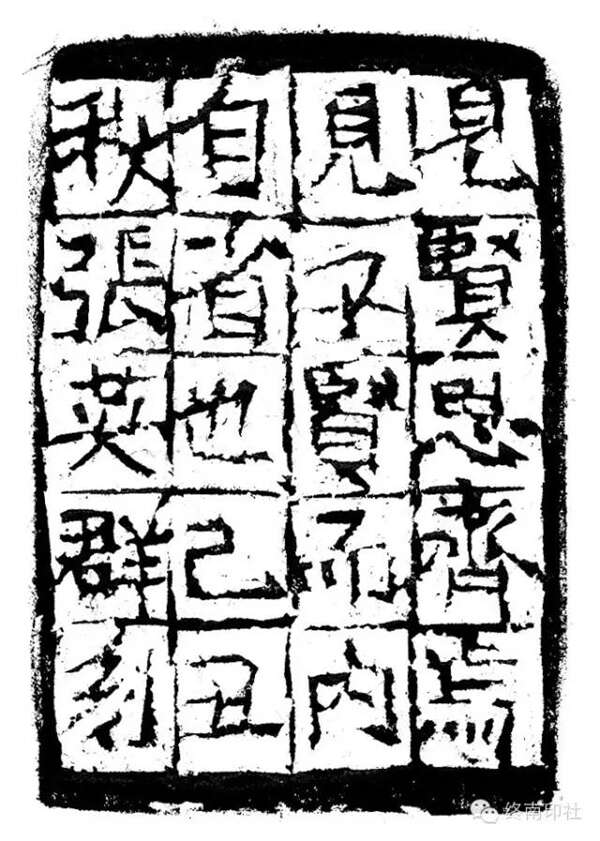 見賢思齊焉
見不賢而内
自省也己丑
秋張英群刻
终南印社